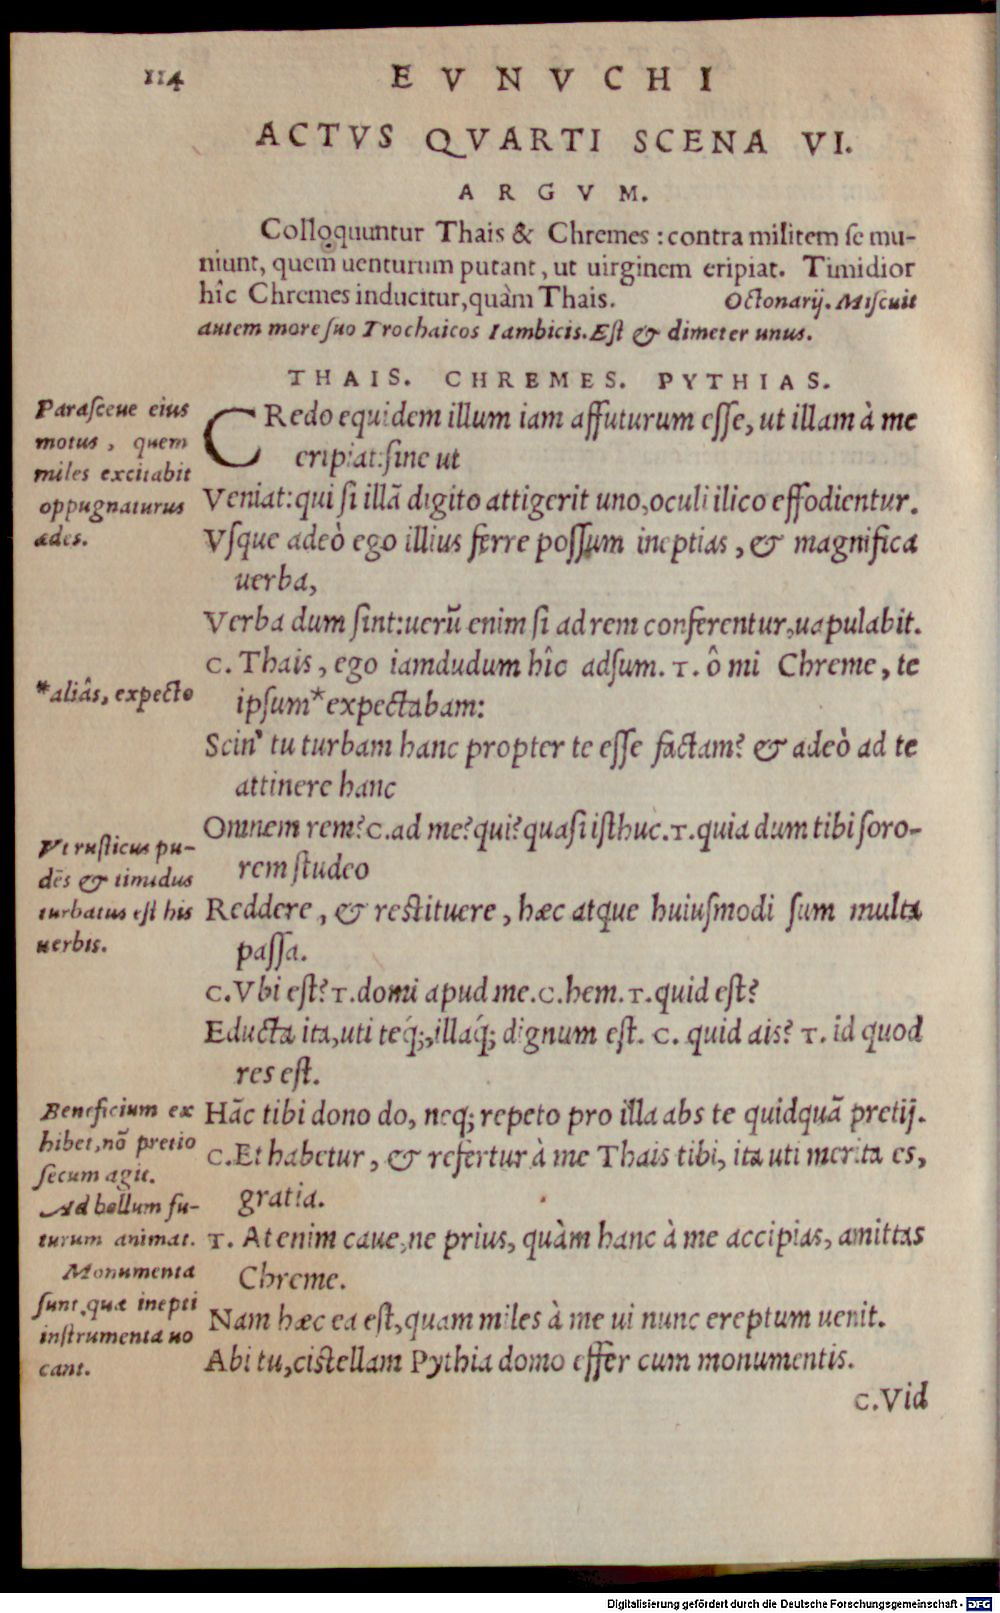 114
EVNVCHI
ACTVS QVARTI SCENA VI.
ARGVM.
Colloquuntur Thais & Chremes : contra militem se mu-
niunt, quem uenturum putant, ut uirginem eripiat. Timidior
hîc Chremes inducitur, quàm Thais. Octonarij. Miscuit
autem more suo Trochaicos Iambicis. Est & dimeter unus.
THAIS. CHREMES. PYTHIAS.
Parasceue eius
motus, quem
miles excitabit
oppugnaturus
ædes.
CRedo equidem illum iam affuturum esse, ut illam à me
eripiat: sine ut
Veniat: qui si illã digito attigerit uno, oculi ilico effodientur.
Vsque adeò ego illius ferre possum ineptias, & magnifica
uerba,
Verba dum sint: uerũ enim si ad rem conferentur, uapulabit.
C. Thais, ego iamdudum hîc adsum. T. ô mi Chreme, te
*aliâs, expecto
ipsum* expectabam:
Scin' tu turbam hanc propter te esse factam? & adeò ad te
attinere hanc
Omnem rem? C. ad me? qui? quasi isthuc. T. quia dum tibi soro-
rem studeo
Vt rusticus pu-
dẽs & timidus
turbatus est his
uerbis.
Reddere, & restituere, hæc atque huiusmodi sum multa
passa.
C. Vbi est? T. domi apud me. C. hem. T. quid est?
Educta ita, uti teq́;, illaq́; dignum est. C. quid ais? T. id quod
res est.
Beneficium ex
hibet, nõ pretio
secum agit.
Hãc tibi dono do, neq; repeto pro illa abs te quidquã pretij.
C. Et habetur, & refertur à me Thais tibi, ita uti merita es,
gratia.
Ad bellum fu-
turum animat.
T. At enim caue, ne prius, quàm hanc à me accipias, amittas
Chreme.
Monumenta
sunt, quæ inepti
instrumenta uo
cant.
Nam hæc ea est, quam miles à me ui nunc ereptum uenit.
Abi tu, cistellam Pythia domo effer cum monumentis.
C. Vid
Digitalisierung gefördert durch die Deutsche Forschungsgemeinschaft - DFG